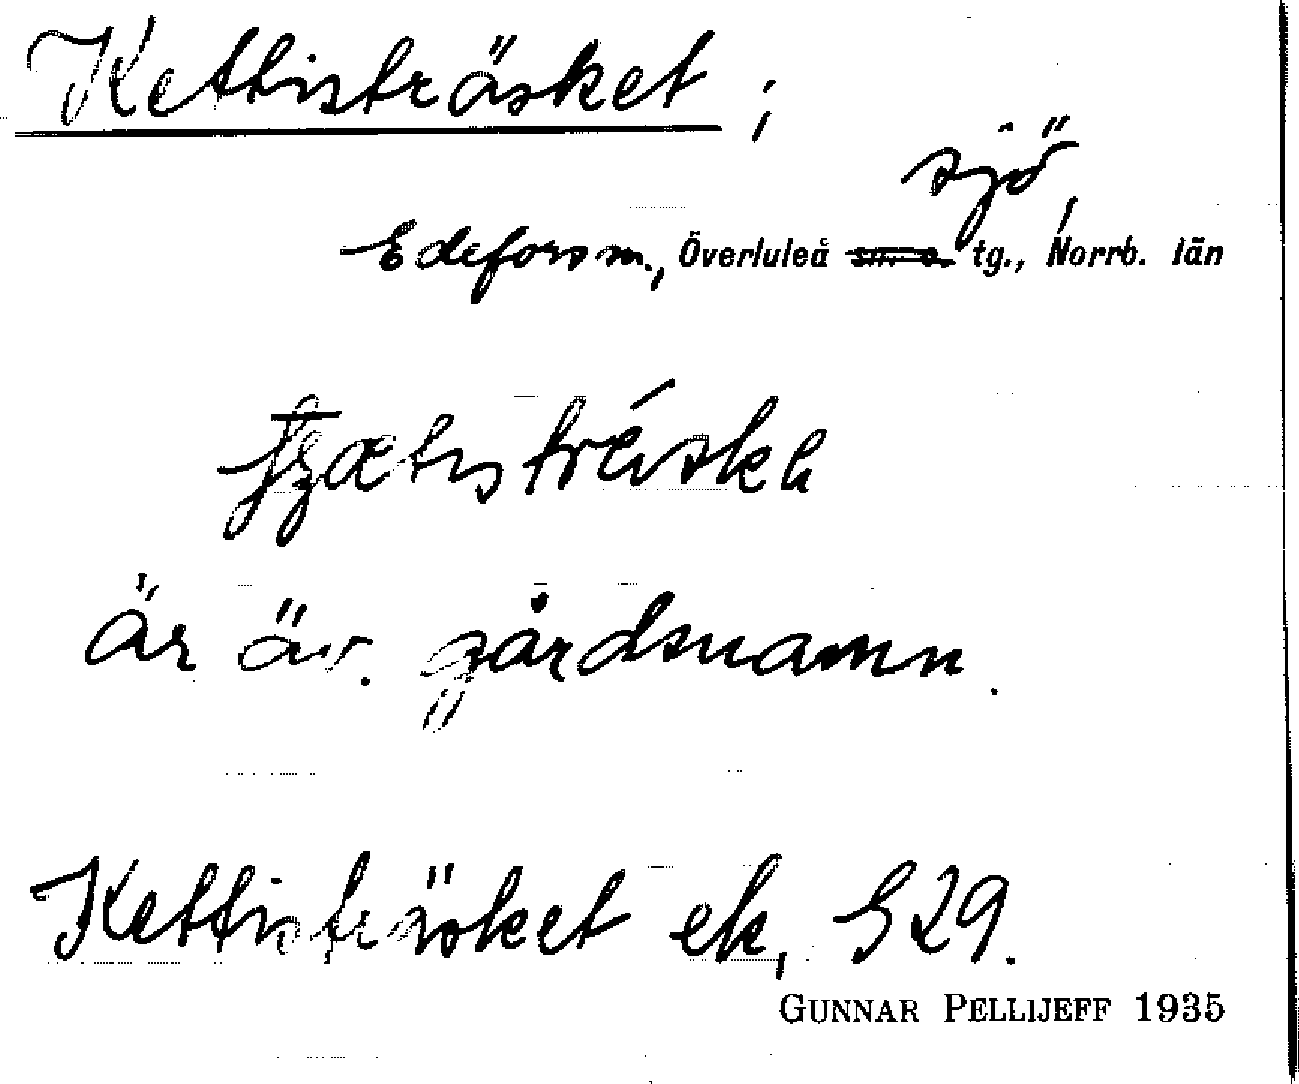 Kettisträsket ;
sjö,
Edefors m., Överluleå sn. o. tg., Norrb. län
är äv. gårdsnamn.
Kettisträsket ek, S29.
GUNNAR PELLIJEFF 1935